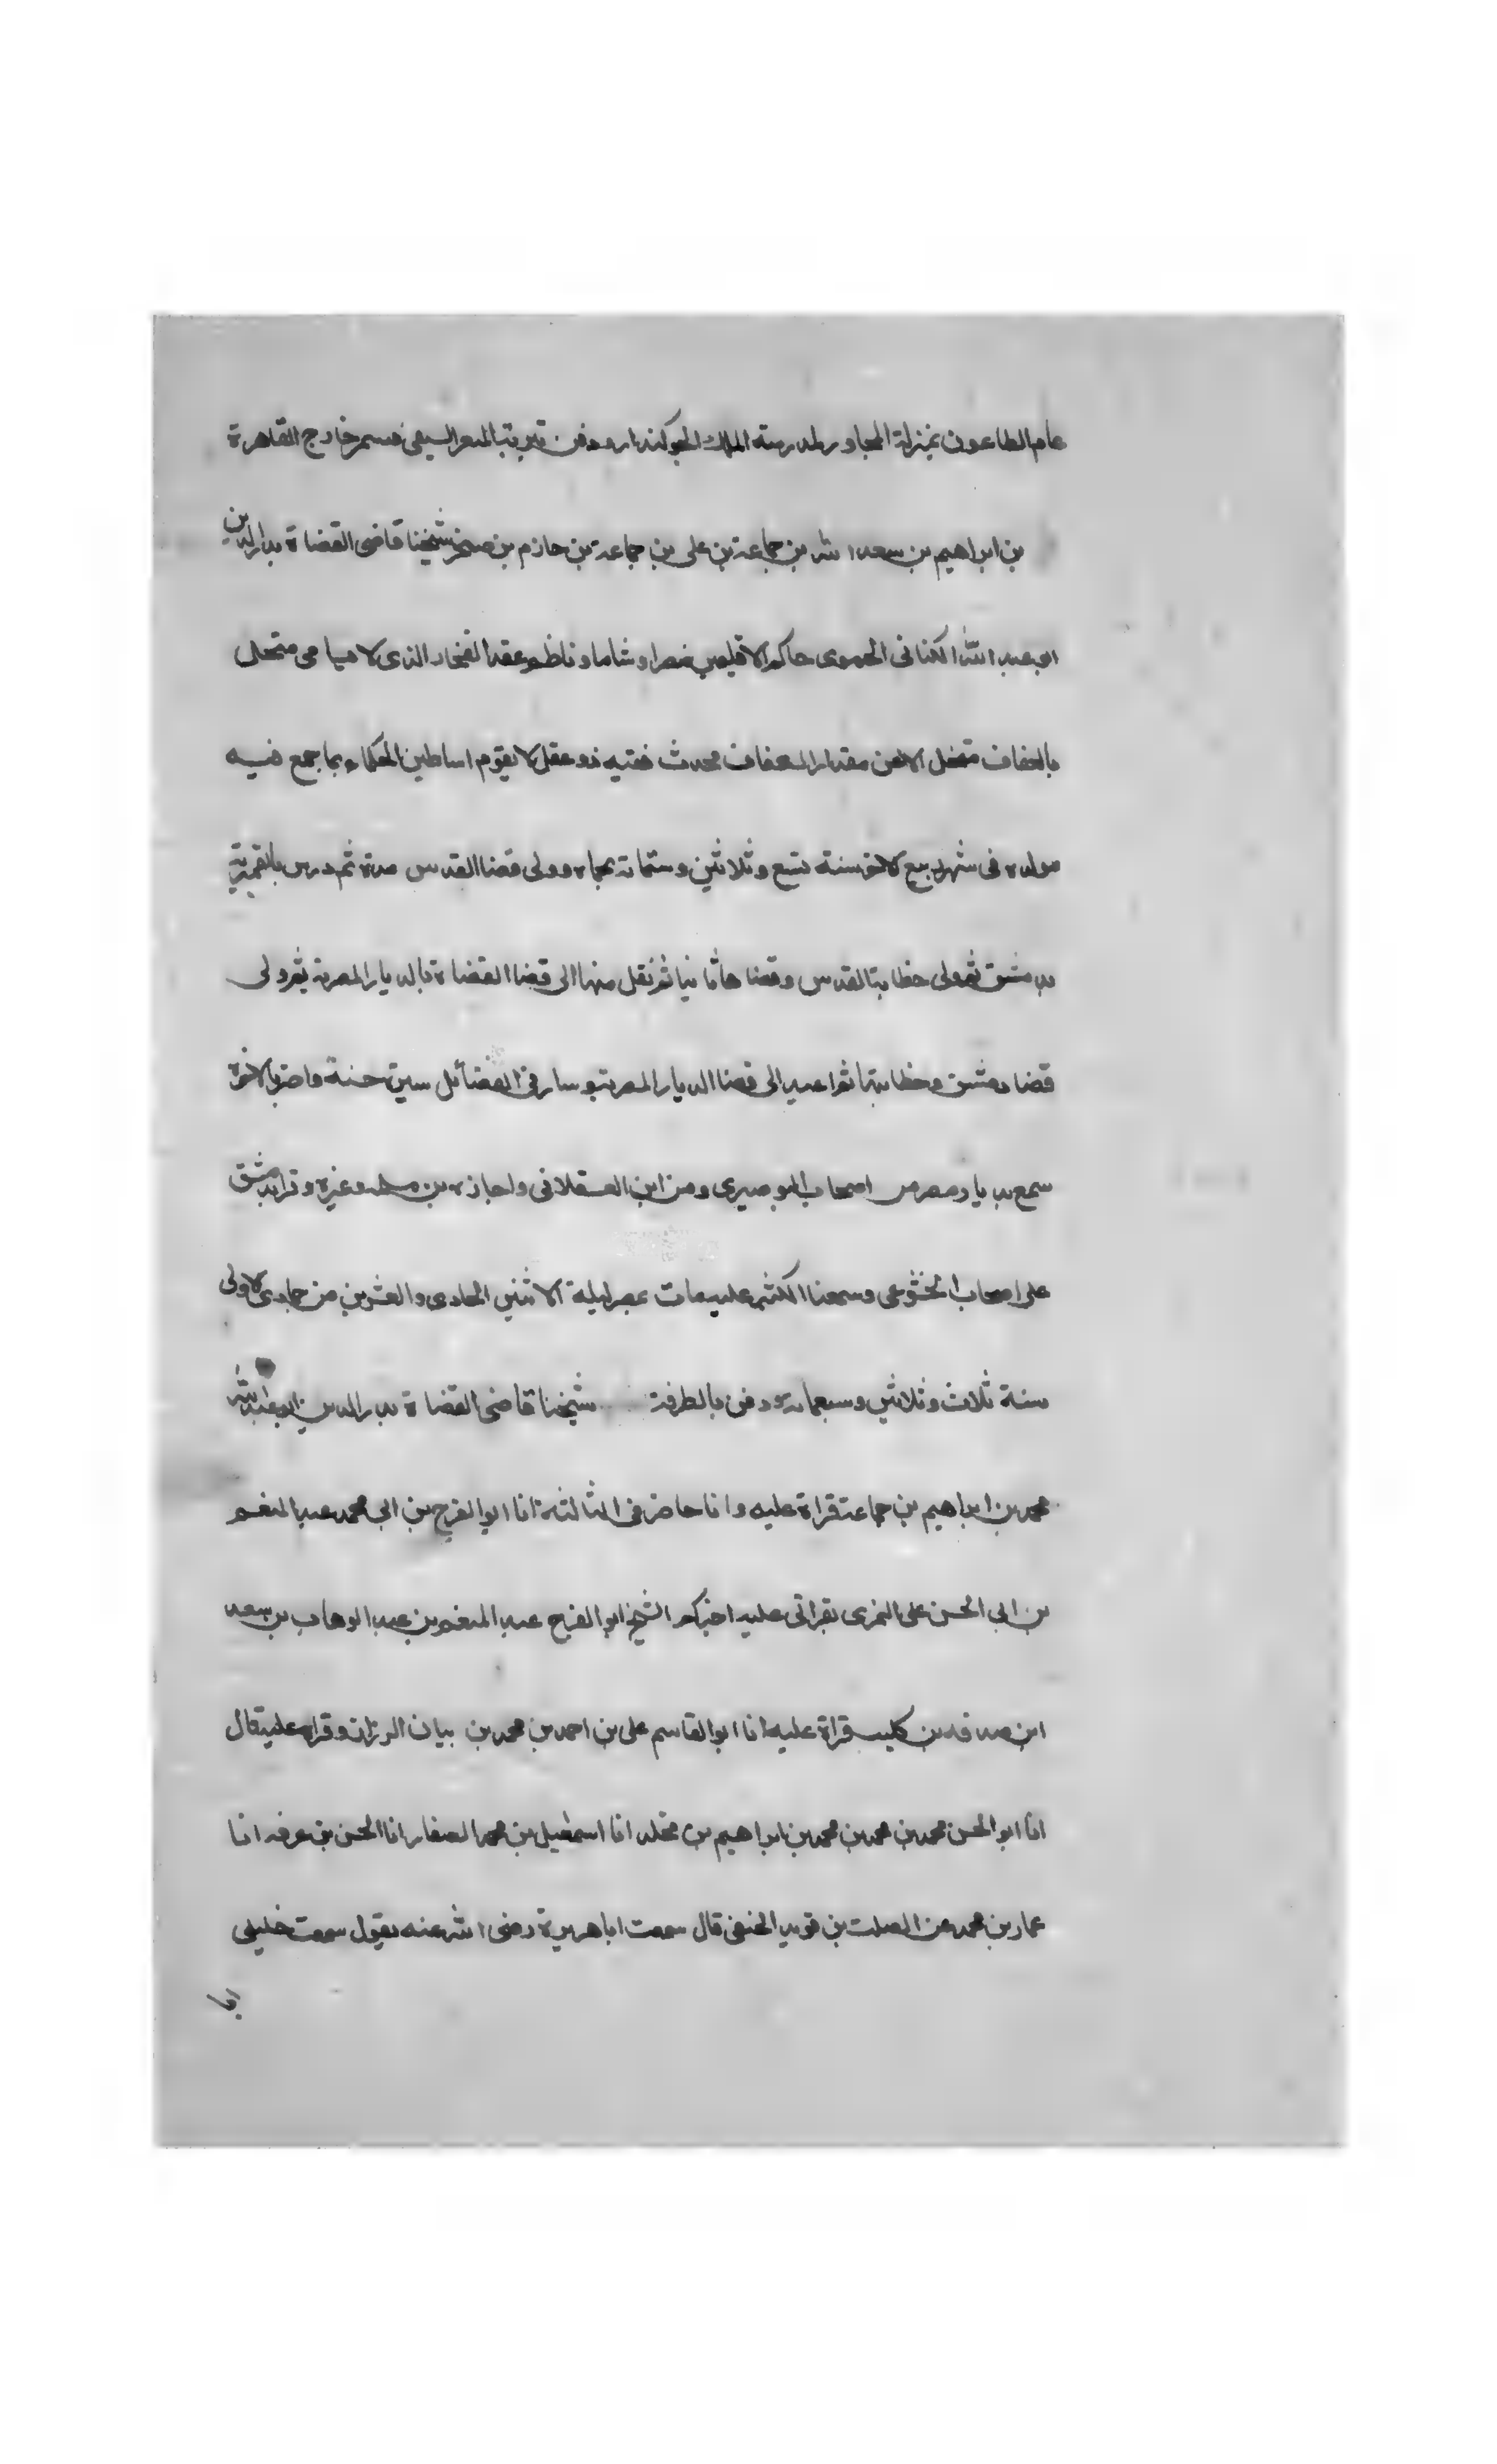 عام الطاعون بمنزلة المجاور لمدرسته الملك الجوكندار ودفن بتربة المعر السيفى قسمر خارج القاهرة
بن ابراهيم بن سعد الله بن جماعة بن على بن جماعة بن حازم بن صخر شيخنا قاضى القضاة بدر الدين
ابو عبد الله الكنانى الحموى حاكم الاقليمين مصرا وشاما وناظم عقد الفخار الذى لا ميامى متحل
بالعفاف متخل الا عن مقدار الكفاف محدث فقيه ذو عقل لا يقوم اساطين الحكماء بما جمع فيه
مولده فى شهر ربيع الاخر سنة تسع وثلاثين وستماية بحماه وولى قضا القدس مدة ثم درس بالقمرية
بدمشق ثم ولى خطابة القدس وقضاها ثانيا ثم نقل منها الى قضا القضاة بالديار المصرية ثم ولى
قضا دمشق وخطابتها ثم اعيد الى قضا الديار المصرية وسار فى الفضائل سيرة حسنة واضر بالاخرة
سمع بديار مصر من اصحاب البوصيرى ومن ابن العسقلانى واجازه بن مسلمة وغيره وقرا بدمشق
على اصحاب الخشوعى وسمعنا الكثير عليه مات بمصر ليلة الاثنين الحادى والعشرين من جمادى الاولى
سنة ثلاث وثلاثين وسبعماية ودفن بالطرفة شيخنا قاضى القضاة بدر الدين ابو عبد الله
محمد بن ابراهيم بن جماعة قراة عليه وانا حاضر فى الثالثة انا ابو الفرج بن ابى محمد عبد المنعم
بن ابى الحسن على النمرى بقراتى عليه اخبركم الشيخ ابو الفرج عبد المنعم بن عبد الوهاب بن سعد
ابن صدقه بن كليب قراة عليه انا ابو القاسم على بن احمد بن محمد بن بيان الرزاز وقراه عليه قال
انا ابو الحسن محمد بن محمد بن محمد بن ابراهيم بن مخلد انا اسمعيل بن محمد الصفار انا الحسن بن عرفه انا
عمار بن محمد عن الصلت بن قويد الحنفى قال سمعت ابا هريرة رضى الله عنه يقول سمعت خليلى
ابا